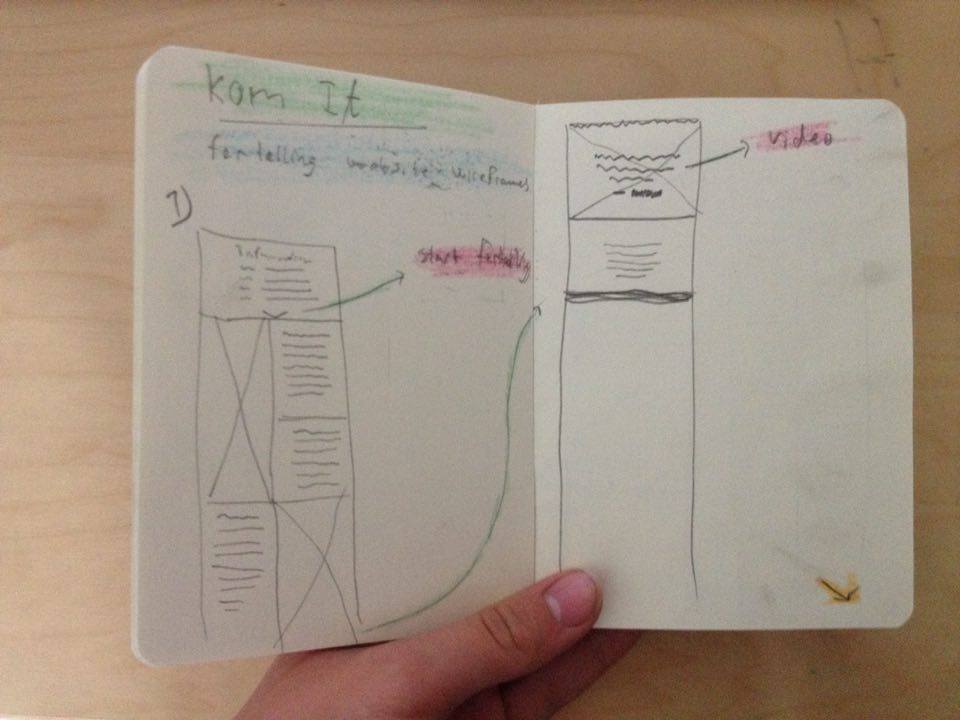 Kom It
fortelling website wireframes
1)
Information
start fortelling
video